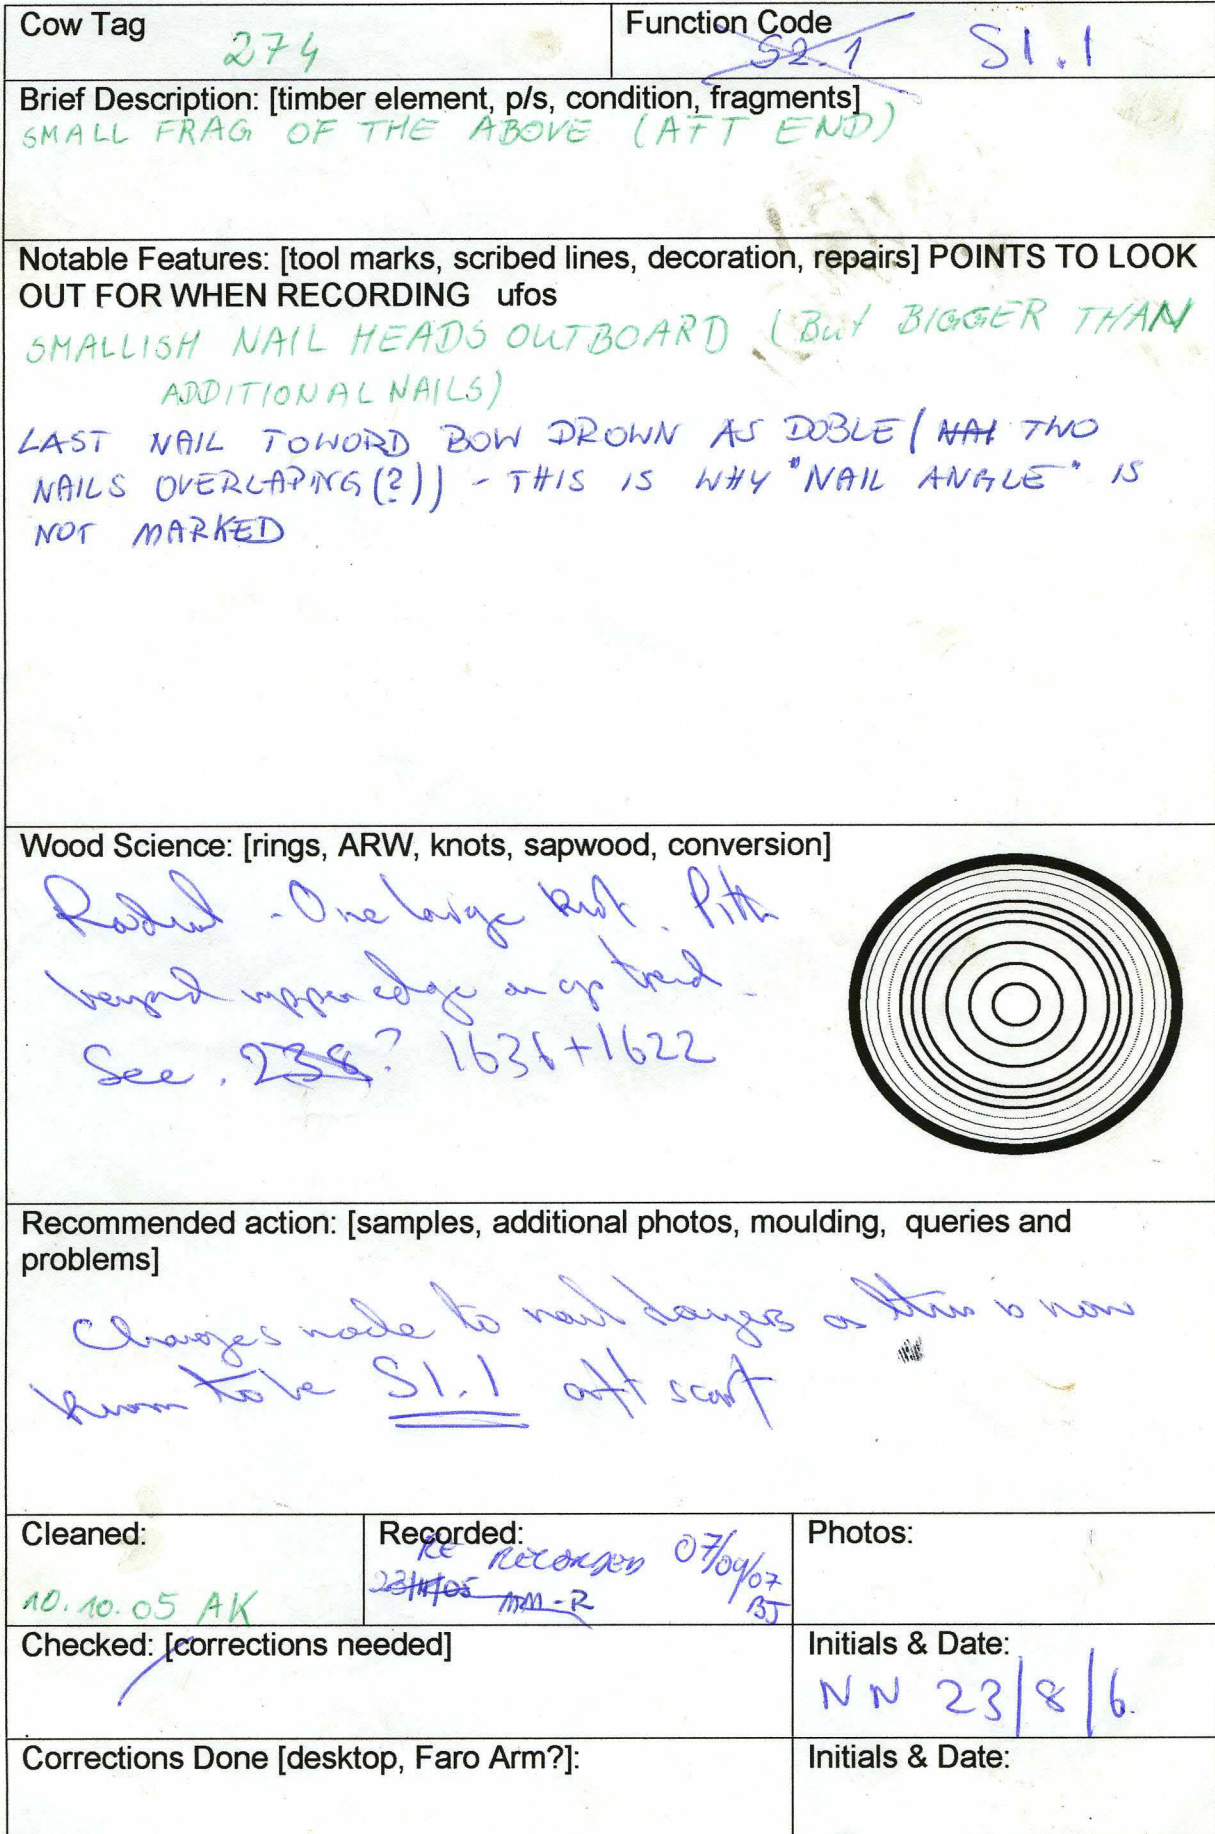 Cow Tag
274
Function Code
S2.1 S1.1
Brief Description: [timber element, p/s, condition, fragments]
SMALL FRAG OF THE ABOVE (AFT END)
Notable Features: [tool marks, scribed lines, decoration, repairs] POINTS TO LOOK
OUT FOR WHEN RECORDING ufos
SMALLISH NAIL HEADS OUTBOARD (BUT BIGGER THAN
ADDITIONAL NAILS)
LAST NAIL TOWORD BOW DROWN AS DOBLE (NAI TWO
NAILS OVERLAPING(?)) - THIS IS WHY "NAIL ANGLE" IS
NOT MARKED
Wood Science: [rings, ARW, knots, sapwood, conversion]
Radial - One large knot. Pith
beyond upper edge on trend.
See. 238? 1636+1622
Recommended action: [samples, additional photos, moulding, queries and
problems]
Changes made to nail layers as this is now
known to be S1.1 aft scarf
Cleaned:
10.10.05 AK
Recorded:
RE RECORDED 07/09/07
23/11/05 MM-R BJ
Photos:
Checked: [corrections needed]
Initials & Date:
NN 23/8/6.
Corrections Done [desktop, Faro Arm?]:
Initials & Date: